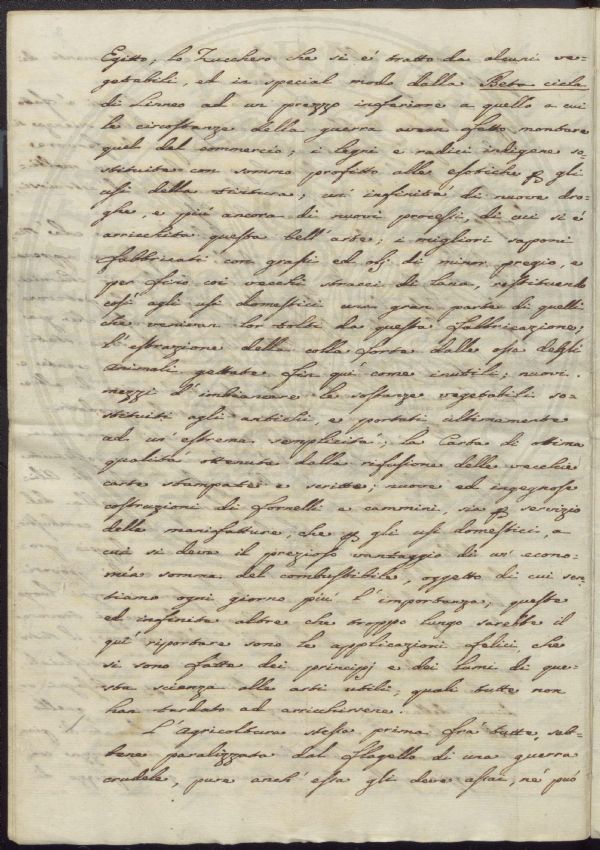 Egitto; lo Zucchero che si é tratto da alcuni ve-
getabili, ed in special modo dalla Beta cicla
di Linneo ad un prezzo inferiore a quello a cui
le circostanze della guerra avean fatto montare
quel del commercio; i legni e radici indigene so-
stituite con sommo profitto alle esotiche p gli
usi della tintura; un' infinità di nuove dro-
ghe, e piú ancora di nuovi processi, di cui si é
arricchita questa bell' arte; i migliori saponi
fabbricati con grassi ed olj di minor pregio, e
per fino coi vecchj stracci di lana, restituendo
cosí agli usi domestici una gran parte di quelli
che venivan lor tolti da questa fabbricazione;
l' estrazione della colla forte dalle ossa degli
Animali gettate fin quí come inutili; nuovi
mezzi d' imbiancare le sostanze vegetabili so-
stituiti agli antichi, e portati ultimamente
ad un' estrema semplicità; la Carta di ottima
qualità ottenuta dalla rifusione delle vecchie
carte stampate e scritte; nuove ed ingegnose
costruzioni di fornelli e cammini, sia p servizio
delle manifatture, che p gli usi domestici, a
cui si deve il prezioso vantaggio di un' econo-
mía somma del combustibile, oggetto di cui sen-
tiamo ogni giorno piú l' importanza; queste
ed infinite altre che troppo lungo sarebbe il
quí riportare sono le applicazioni felici, che
si sono fatte dei principj e dei lumi di que-
sta scienza alle arti utili, quali tutte non
han tardato ad arricchirsene.
L' Agricoltura stessa, prima frà tutte, seb-
bene paralizzata dal flagello di una guerra
crudele, pure anch' essa gli deve assai, né può